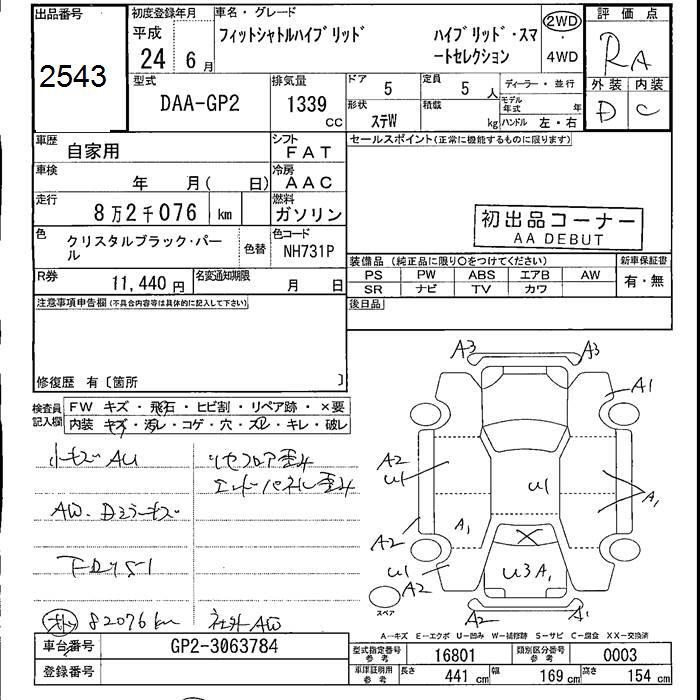 出品番号
2543
初度登録年月
平成
24 6月
車名・グレード
フィットシャトルハイブリッド ハイブリッド・スマートセレクション
2WD
・
4WD
評価点
RA
外装 内装
D C
型式
DAA-GP2
排気量
1339 CC
ドア
5
定員
5 人
形状
ステW
積載
kg
ディーラー・並行
モデル年式 年
ハンドル 左・右
車歴
自家用
シフト
FAT
車検
年 月( 日)
冷房
AAC
走行
8万2千076 km
燃料
ガソリン
色
クリスタルブラック・パール
色替
色コード
NH731P
R券
11,440 円
名変通知期限
月 日
セールスポイント(正常に機能するものに限ります)
初出品コーナー
AA DEBUT
装備品(純正品に限り○をつけてください)
新車保証書
PS PW ABS エアB AW
SR ナビ TV カワ
有・無
後日品
注意事項申告欄(不具合内容等は具体的に記入して下さい)
修復歴 有〔箇所 〕
検査員記入欄
FW キズ・飛石・ヒビ割・リペア跡・×要
内装 キズ・汚レ・コゲ・穴・スレ・キレ・破レ
小キズ AU
リヤフロア歪み
エンドパネル歪み
AW、Dミラーキズ
82076km
社外AW
A3 A3
A1
A2
U1
U1
A1
A1
A2
U1
A2
U3 A1
A2 A1
スペア
A…キズ E…エクボ U…凹み W…補修跡 S…サビ C…腐食 XX…交換済
車台番号
GP2-3063784
登録番号
型式指定番号
参考
16801
類別区分番号
参考
0003
車庫証明用
参考
長さ 441 cm 幅 169 cm 高さ 154 cm